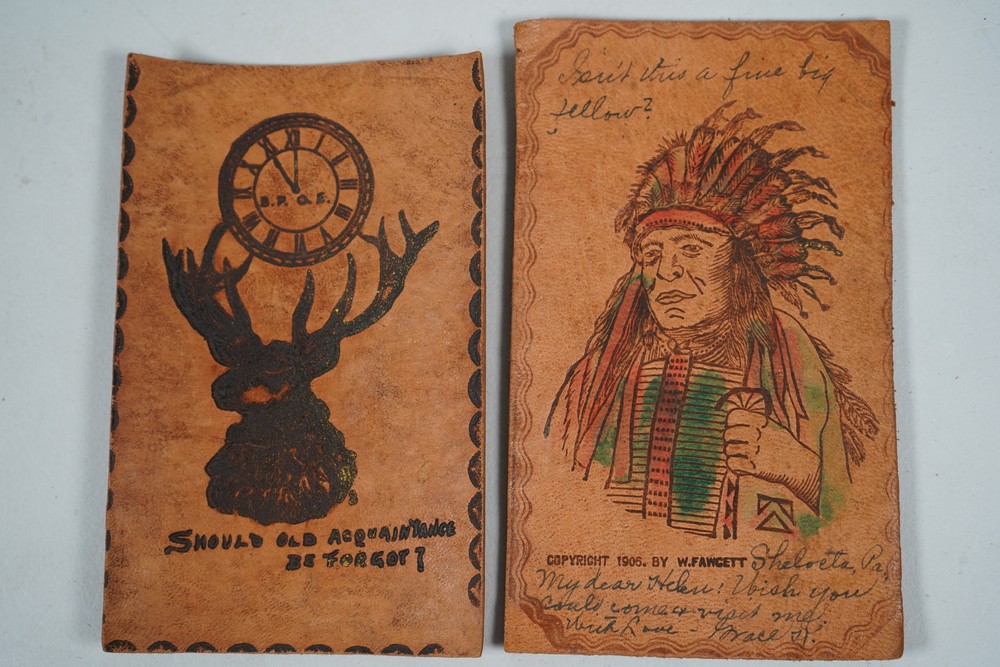 B.P.O.E.
SHOULD OLD ACQUAINTANCE
BE FORGOT?
Isn't this a fine big
fellow?
COPYRIGHT 1906. BY W. FAWCETT
Shelocta, Pa.
My dear Helen: Wish you
could come & visit me.
With Love - Grace